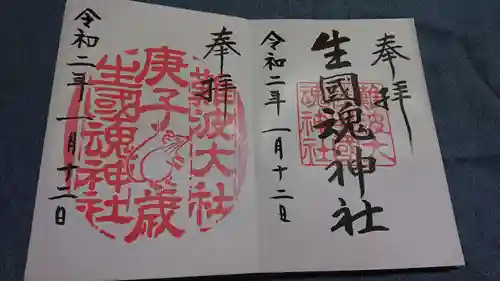 奉拝
生國魂神社
難波大社
生國魂神社
令和二年一月十二日
奉拝
難波大社
庚子歳
生國魂神社
令和二年一月十二日